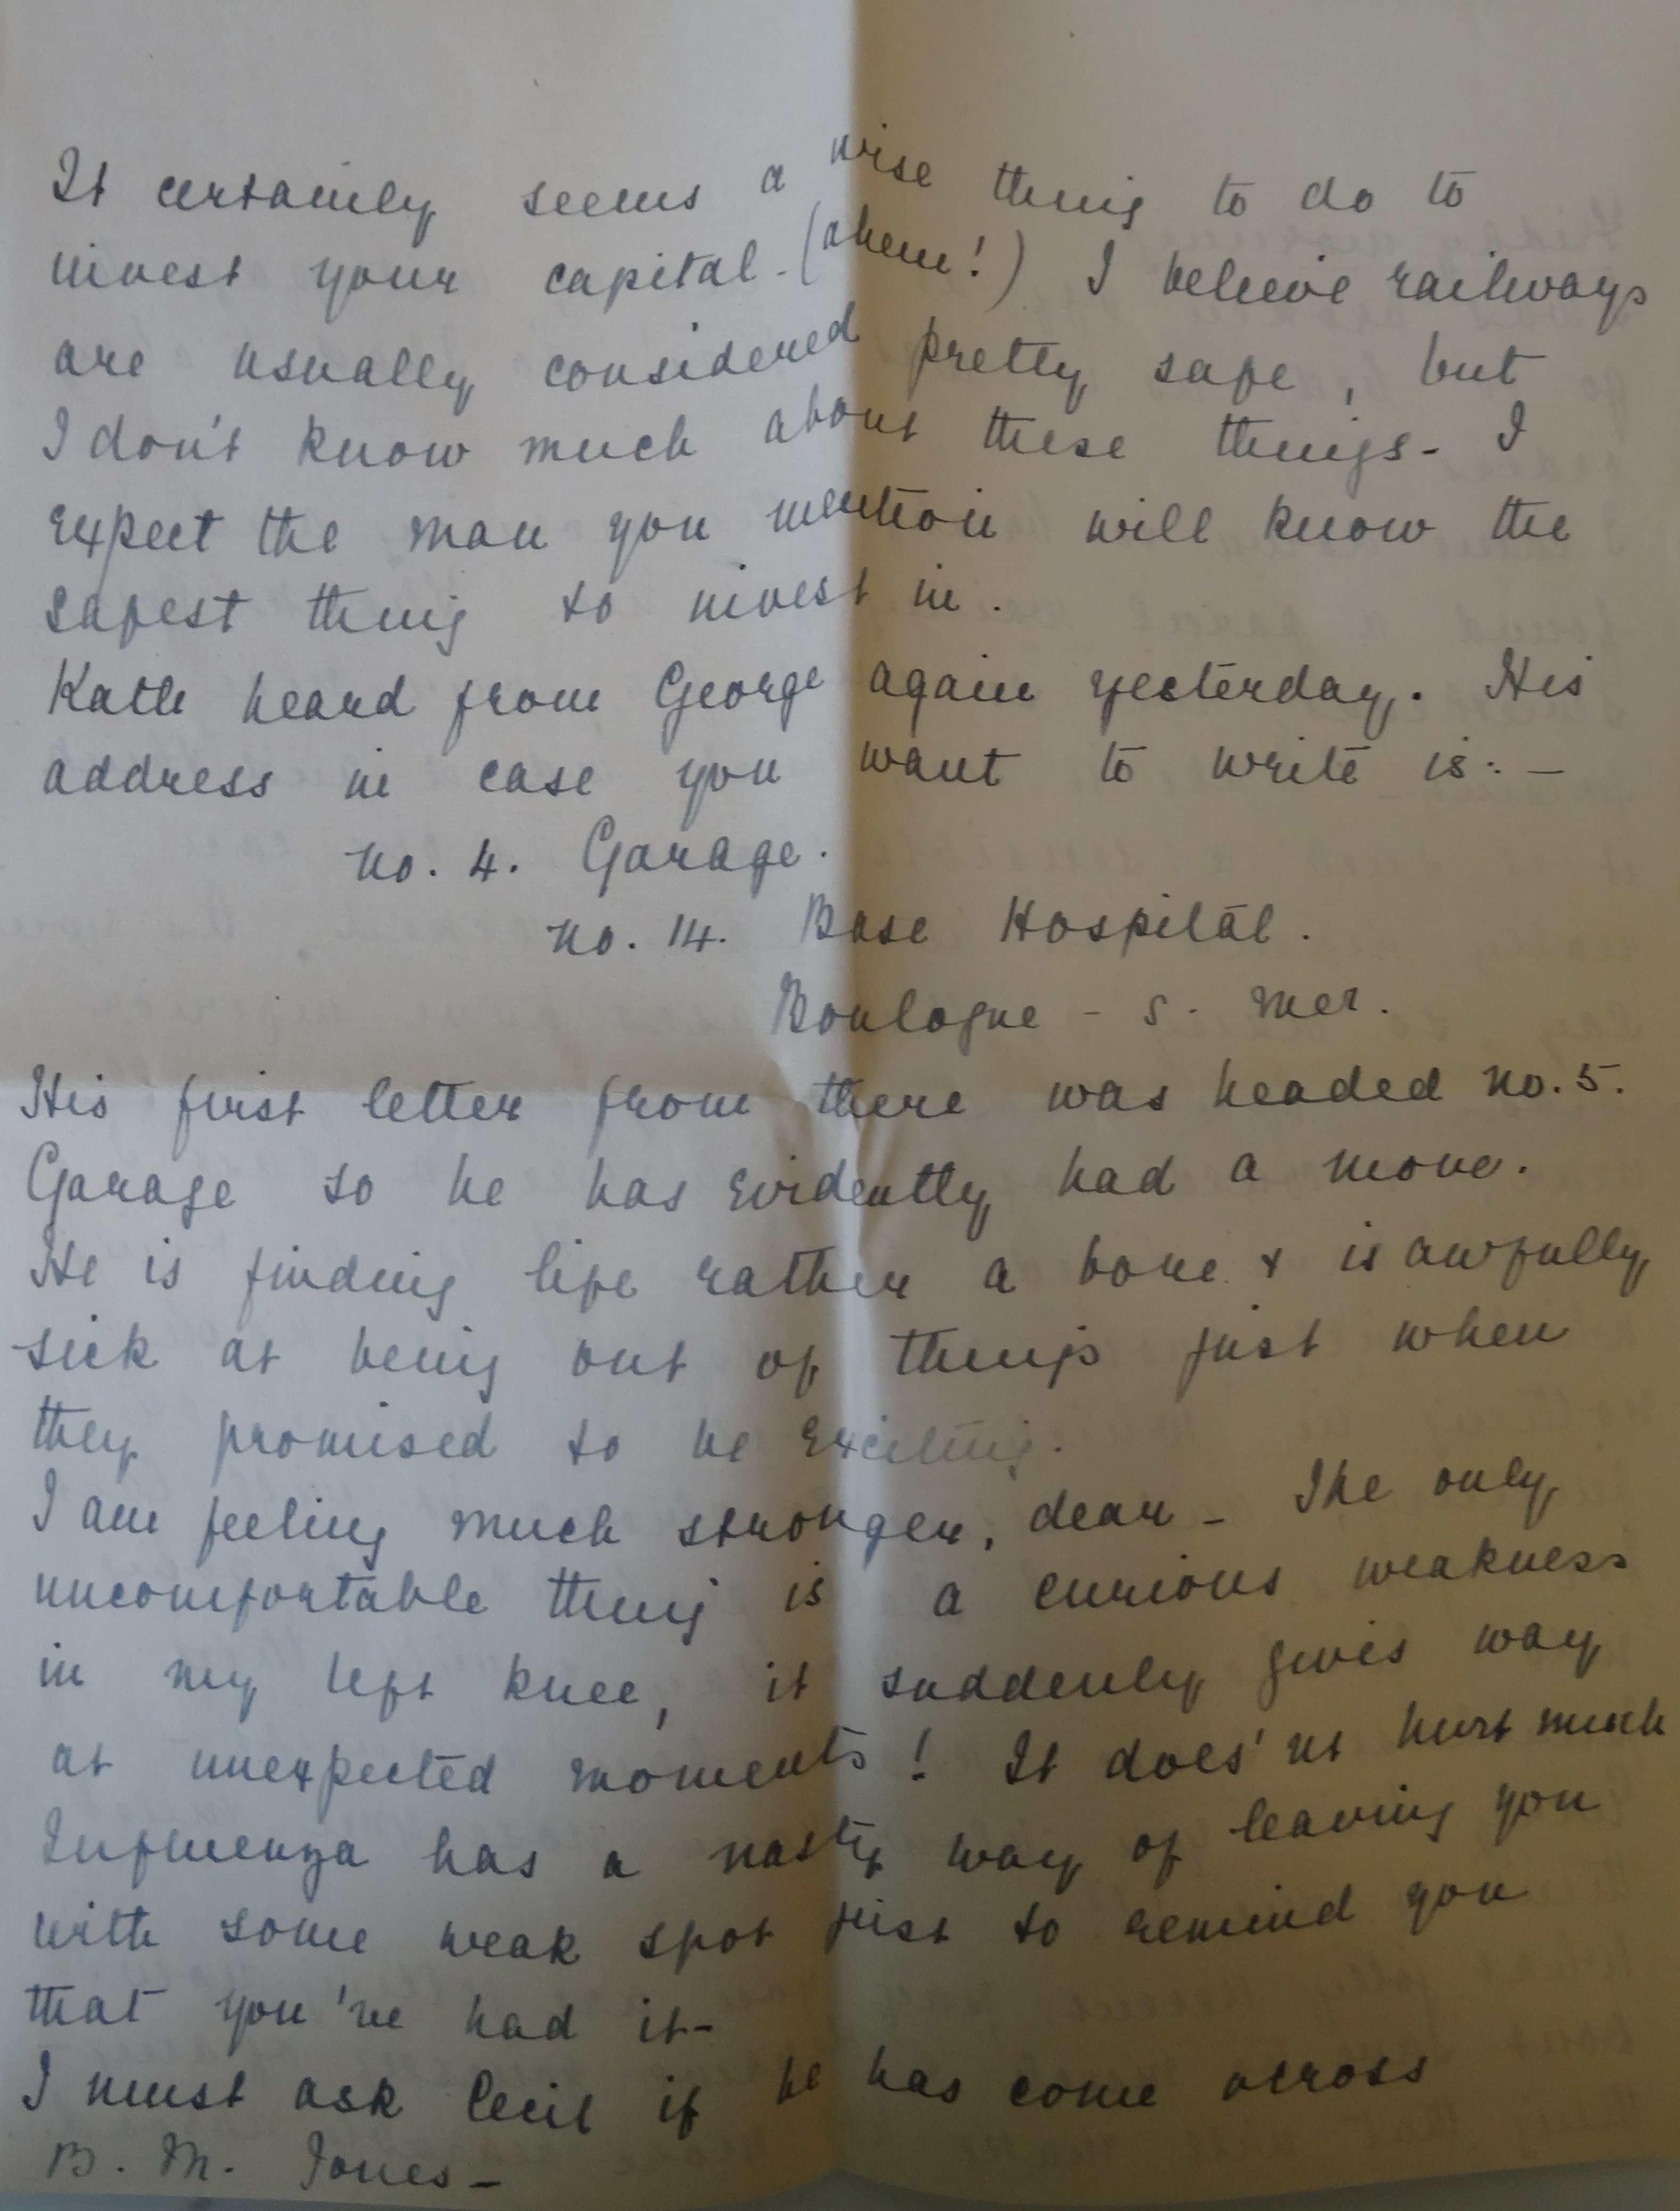 It certainly seems a wise thing to do to
invest your capital - (ahem!) I believe railways
are usually considered pretty safe, but
I don't know much about these things - I
expect the man you mention will know the
safest thing to invest in.
Kath heard from George again yesterday. His
address in case you want to write is: -
No. 4. Garage.
No. 14. Base Hospital.
Boulogne - s. mer.
His first letter from there was headed No. 5.
Garage so he has evidently had a move.
He is finding life rather a bore & is awfully
sick at being out of things just when
they promised to be exciting.
I am feeling much stronger, dear - The only
uncomfortable thing is a curious weakness
in my left knee, it suddenly gives way
at unexpected moments! It does'nt hurt much
Influenza has a nasty way of leaving you
with some weak spot just to remind you
that you've had it -
I must ask Cecil if he has come across
B. M. Jones -